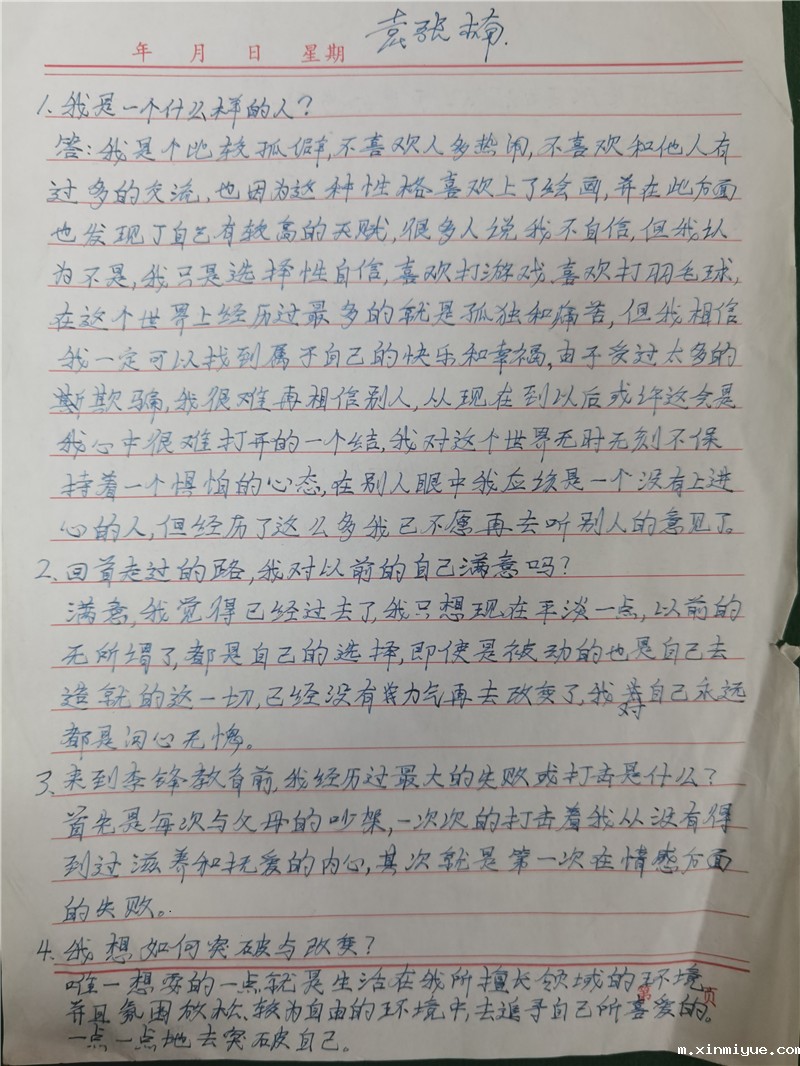 年 月 日 星期 袁张楠.
1. 我是一个什么样的人？
答：我是个比较孤僻，不喜欢人多热闹，不喜欢和他人有
过多的交流，也因为这种性格喜欢上了绘画，并在此方面
也发现了自己有较高的天赋，很多人说我不自信，但我认
为不是，我只是选择性自信，喜欢打游戏、喜欢打羽毛球，
在这个世界上经历过最多的就是孤独和痛苦，但我相信
我一定可以找到属于自己的快乐和幸福，由于受过太多的
欺骗，我很难再相信别人，从现在到以后或许这会是
我心中很难打开的一个结，我对这个世界无时无刻不保
持着一个惧怕的心态，在别人眼中我应该是一个没有上进
心的人，但经历了这么多我已不愿再去听别人的意见了。
2. 回首走过的路，我对以前的自己满意吗？
满意，我觉得已经过去了，我只想现在平淡一点，以前的
无所谓了，都是自己的选择，即使是被动的也是自己去
造就的这一切，已经没有力气再去改变了，我对自己永远
都是问心无愧。
3. 来到李锋教育前，我经历过最大的失败或打击是什么？
首先是每次与父母的吵架，一次次的打击着我从没有得
到过滋养和抚爱的内心，其次就是第一次在情感方面
的失败。
4. 我想如何突破与改变？
唯一想要的一点就是生活在我所擅长领域的环境
第 页
并且氛围放松、较为自由的环境中，去追寻自己所喜爱的。
一点一点地去突破自己。
m.xinmiyue.com